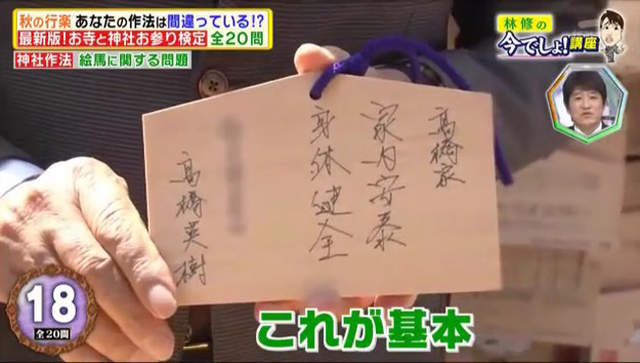 秋の行楽 あなたの作法は間違っている!?
最新版!お寺と神社お参り検定 全20問
神社作法 絵馬に関する問題
林修の
今でしょ!講座
高橋家
家内安泰
身体健全
高橋英樹
18
全20問
これが基本